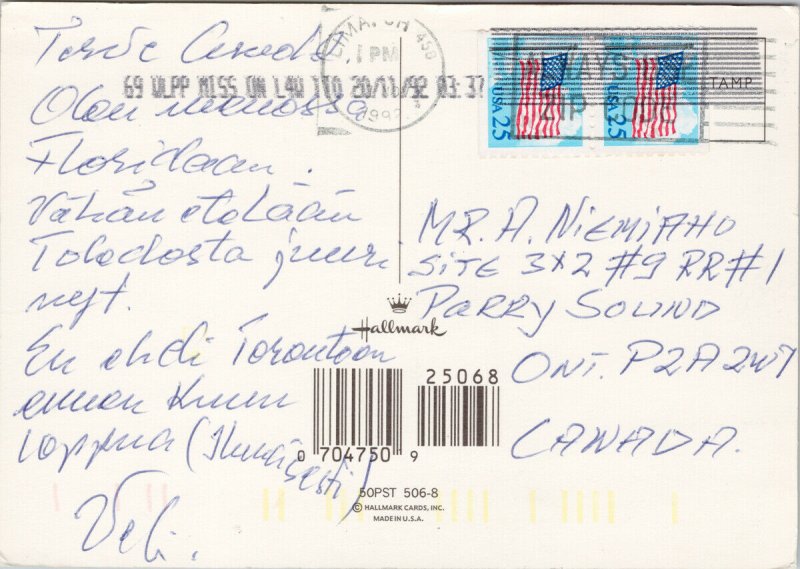 Terve
Olen menossa
Floridaan.
Vähän etelään
Toledosta juuri
nyt.
En ehdi Torontoon
ennen kuun
loppua (
Veli.
LIMA, OH 458
1 PM
1992
69 VLPP MISS ON L4V 1T0 20/11/92 03:37
USA 25
USA 25
ZIP CODE
STAMP
MR. A. NIEMIAHO
SITE 3X2 #9 RR#1
PARRY SOUND
ONT. P2A 2W7
CANADA.
Hallmark
25068
0 704750 9
50PST 506-8
© HALLMARK CARDS, INC.
MADE IN U.S.A.